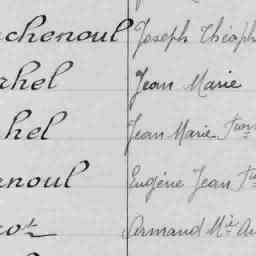 chenoul Joseph Théoph
hel Jean Marie
hel Jean Marie
noul Eugène Jean
Armand Mie